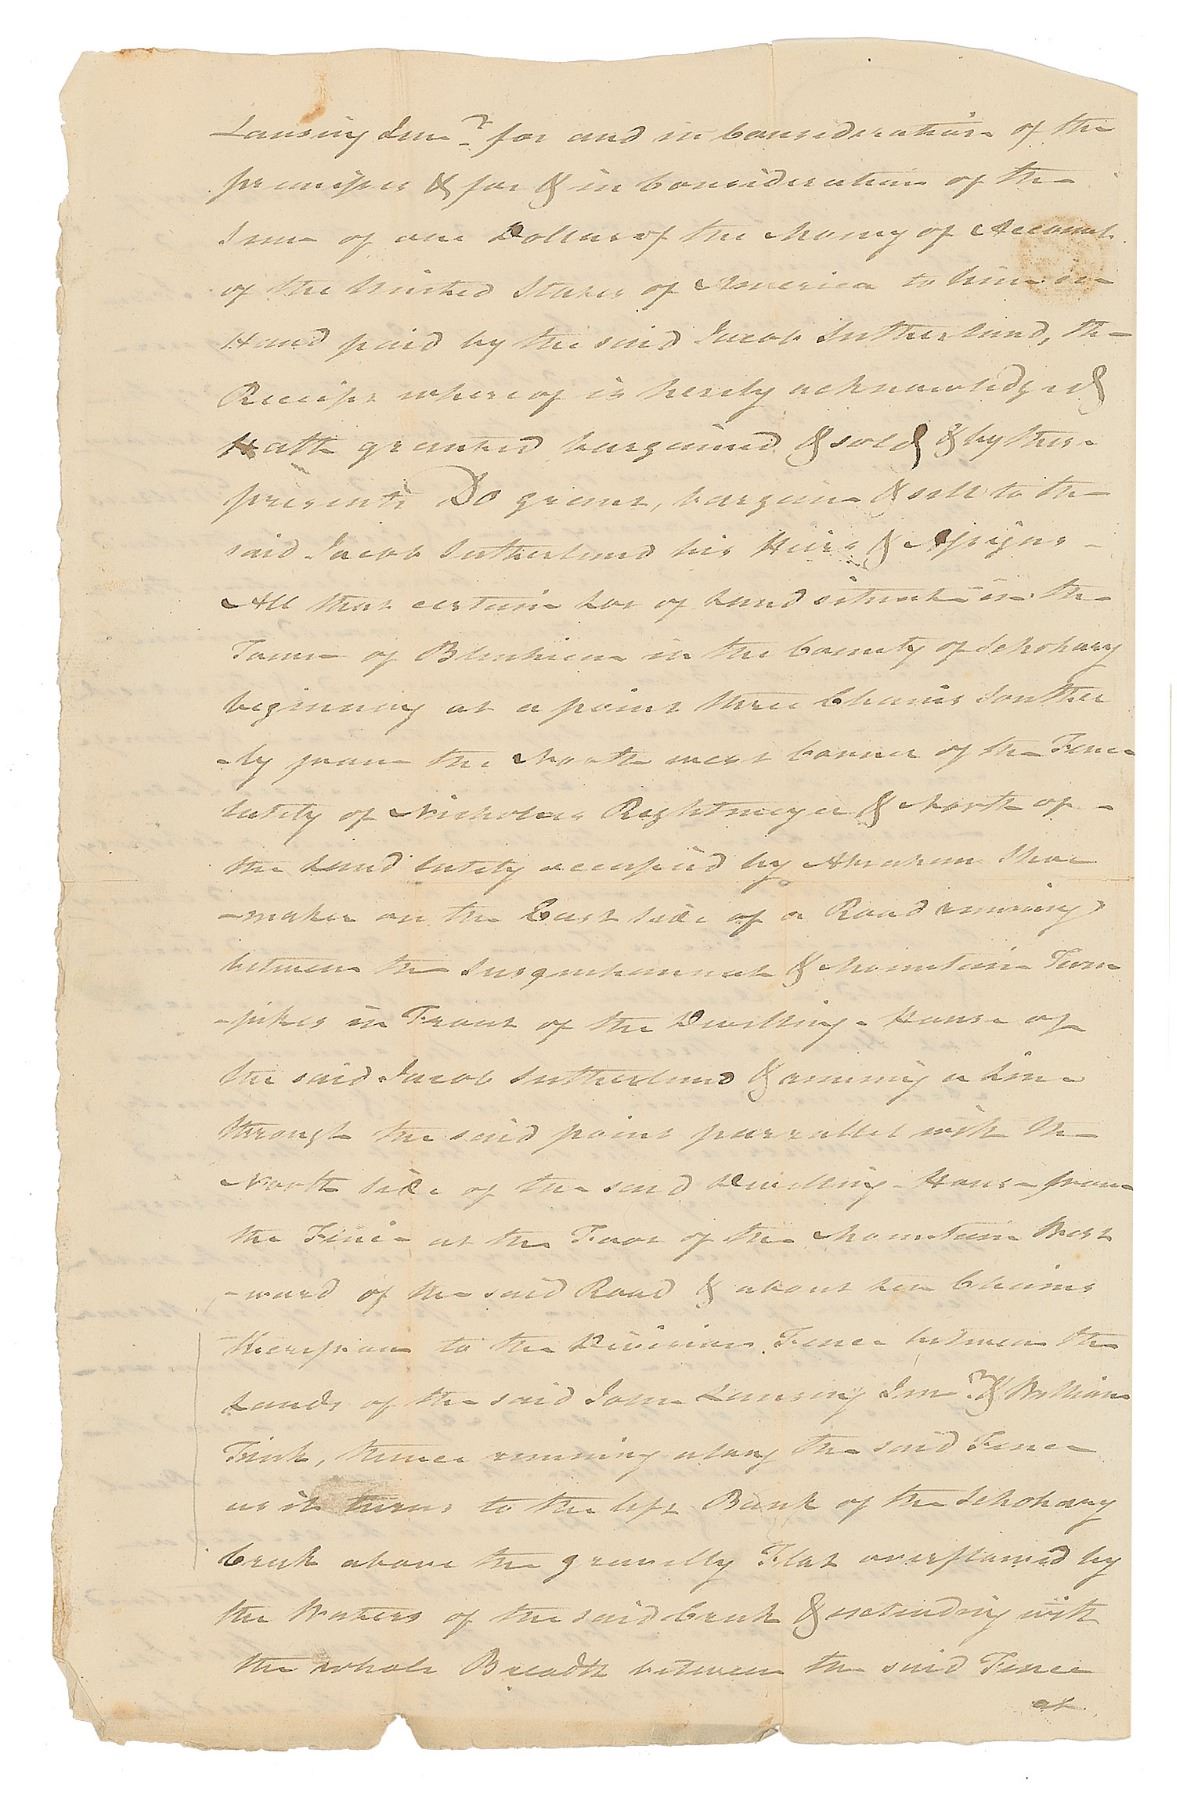 Lansing Junr. for and in Consideration of the
premises & for & in Consideration of the
Sum of one Dollar of the Money of Account
of the United States of America to him in
Hand paid by the said Jacob Sutherland, the
Receipt whereof is hereby acknowledged
Hath granted bargained & sold & by these
presents Do grant, bargain & sell to the
said Jacob Sutherland his Heirs & Assigns -
All that certain Lot of Land situate in the
Town of Blenheim in the County of Schohary
beginning at a point three Chains Souther
-ly from the North west corner of the Fence
lately of Nicholas Rightmeyer & North of -
the Land lately occupied by Abraham Shoe
-maker on the East side of a Road running
between the Susquehannah & Mountain Turn
-pikes in Front of the Dwelling - House of
the said Jacob Sutherland & running a Line
through the said point parrallel with the
North side of the said Dwelling - House from
the Fence at the Foot of the Mountain West
-ward of the said Road & about ten Chains
therefrom to the Division Fence between the
Lands of the said John Lansing Junr. & William
Fink, thence running along the said Fence
as it turns to the left Bank of the Schohary
Creek above the gravelly Flat overflowed by
the Waters of the said Creek & extending with
the whole Breadth between the said Fence
at